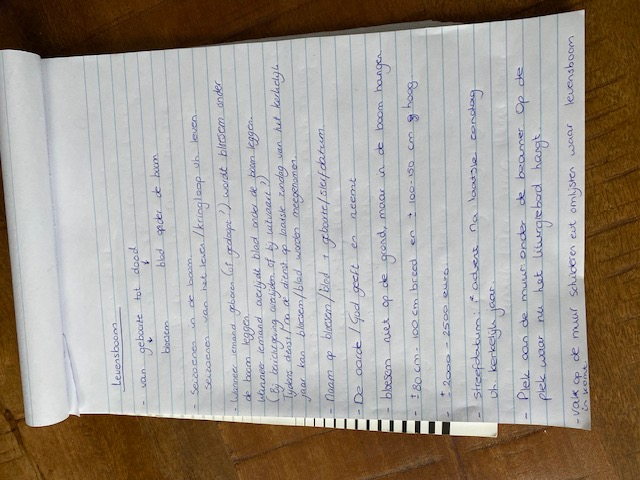 Levensboom
- van geboorte tot dood
bloesem blad onder de boom
- Seizoenen in de boom
Seizoenen van het leven / kringloop vh leven
- Wanneer iemand geboren (of gedoopt?) wordt bloesem onder
de boom leggen.
Wanneer iemand overlijdt blad onder de boom leggen.
(Bij kennisgeving overlijden of bij uitvaart?)
Tijdens dienst. Na de dienst op laatste zondag van het kerkelijk
jaar kan bloesem/blad worden meegenomen.
- Naam op bloesem/blad + geboorte/sterfdatum.
- De aarde / God geeft en neemt
- bloesem niet op de grond, maar in de boom hangen
- ± 80 cm - 100 cm breed en ± 100-150 cm hoog
- ± 2000 - 2500 euro.
- streefdatum: advent. Na laatste zondag
vh kerkelijk jaar.
- Plek aan de muur onder de beamer op de
plek waar nu het liturgiebord hangt.
- vak op de muur schilderen evt omlijsten waar levensboom
in komt.